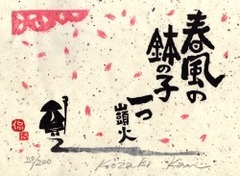 春風の
鉢の子
一つ
山頭火
28/200
Koozaki Kan